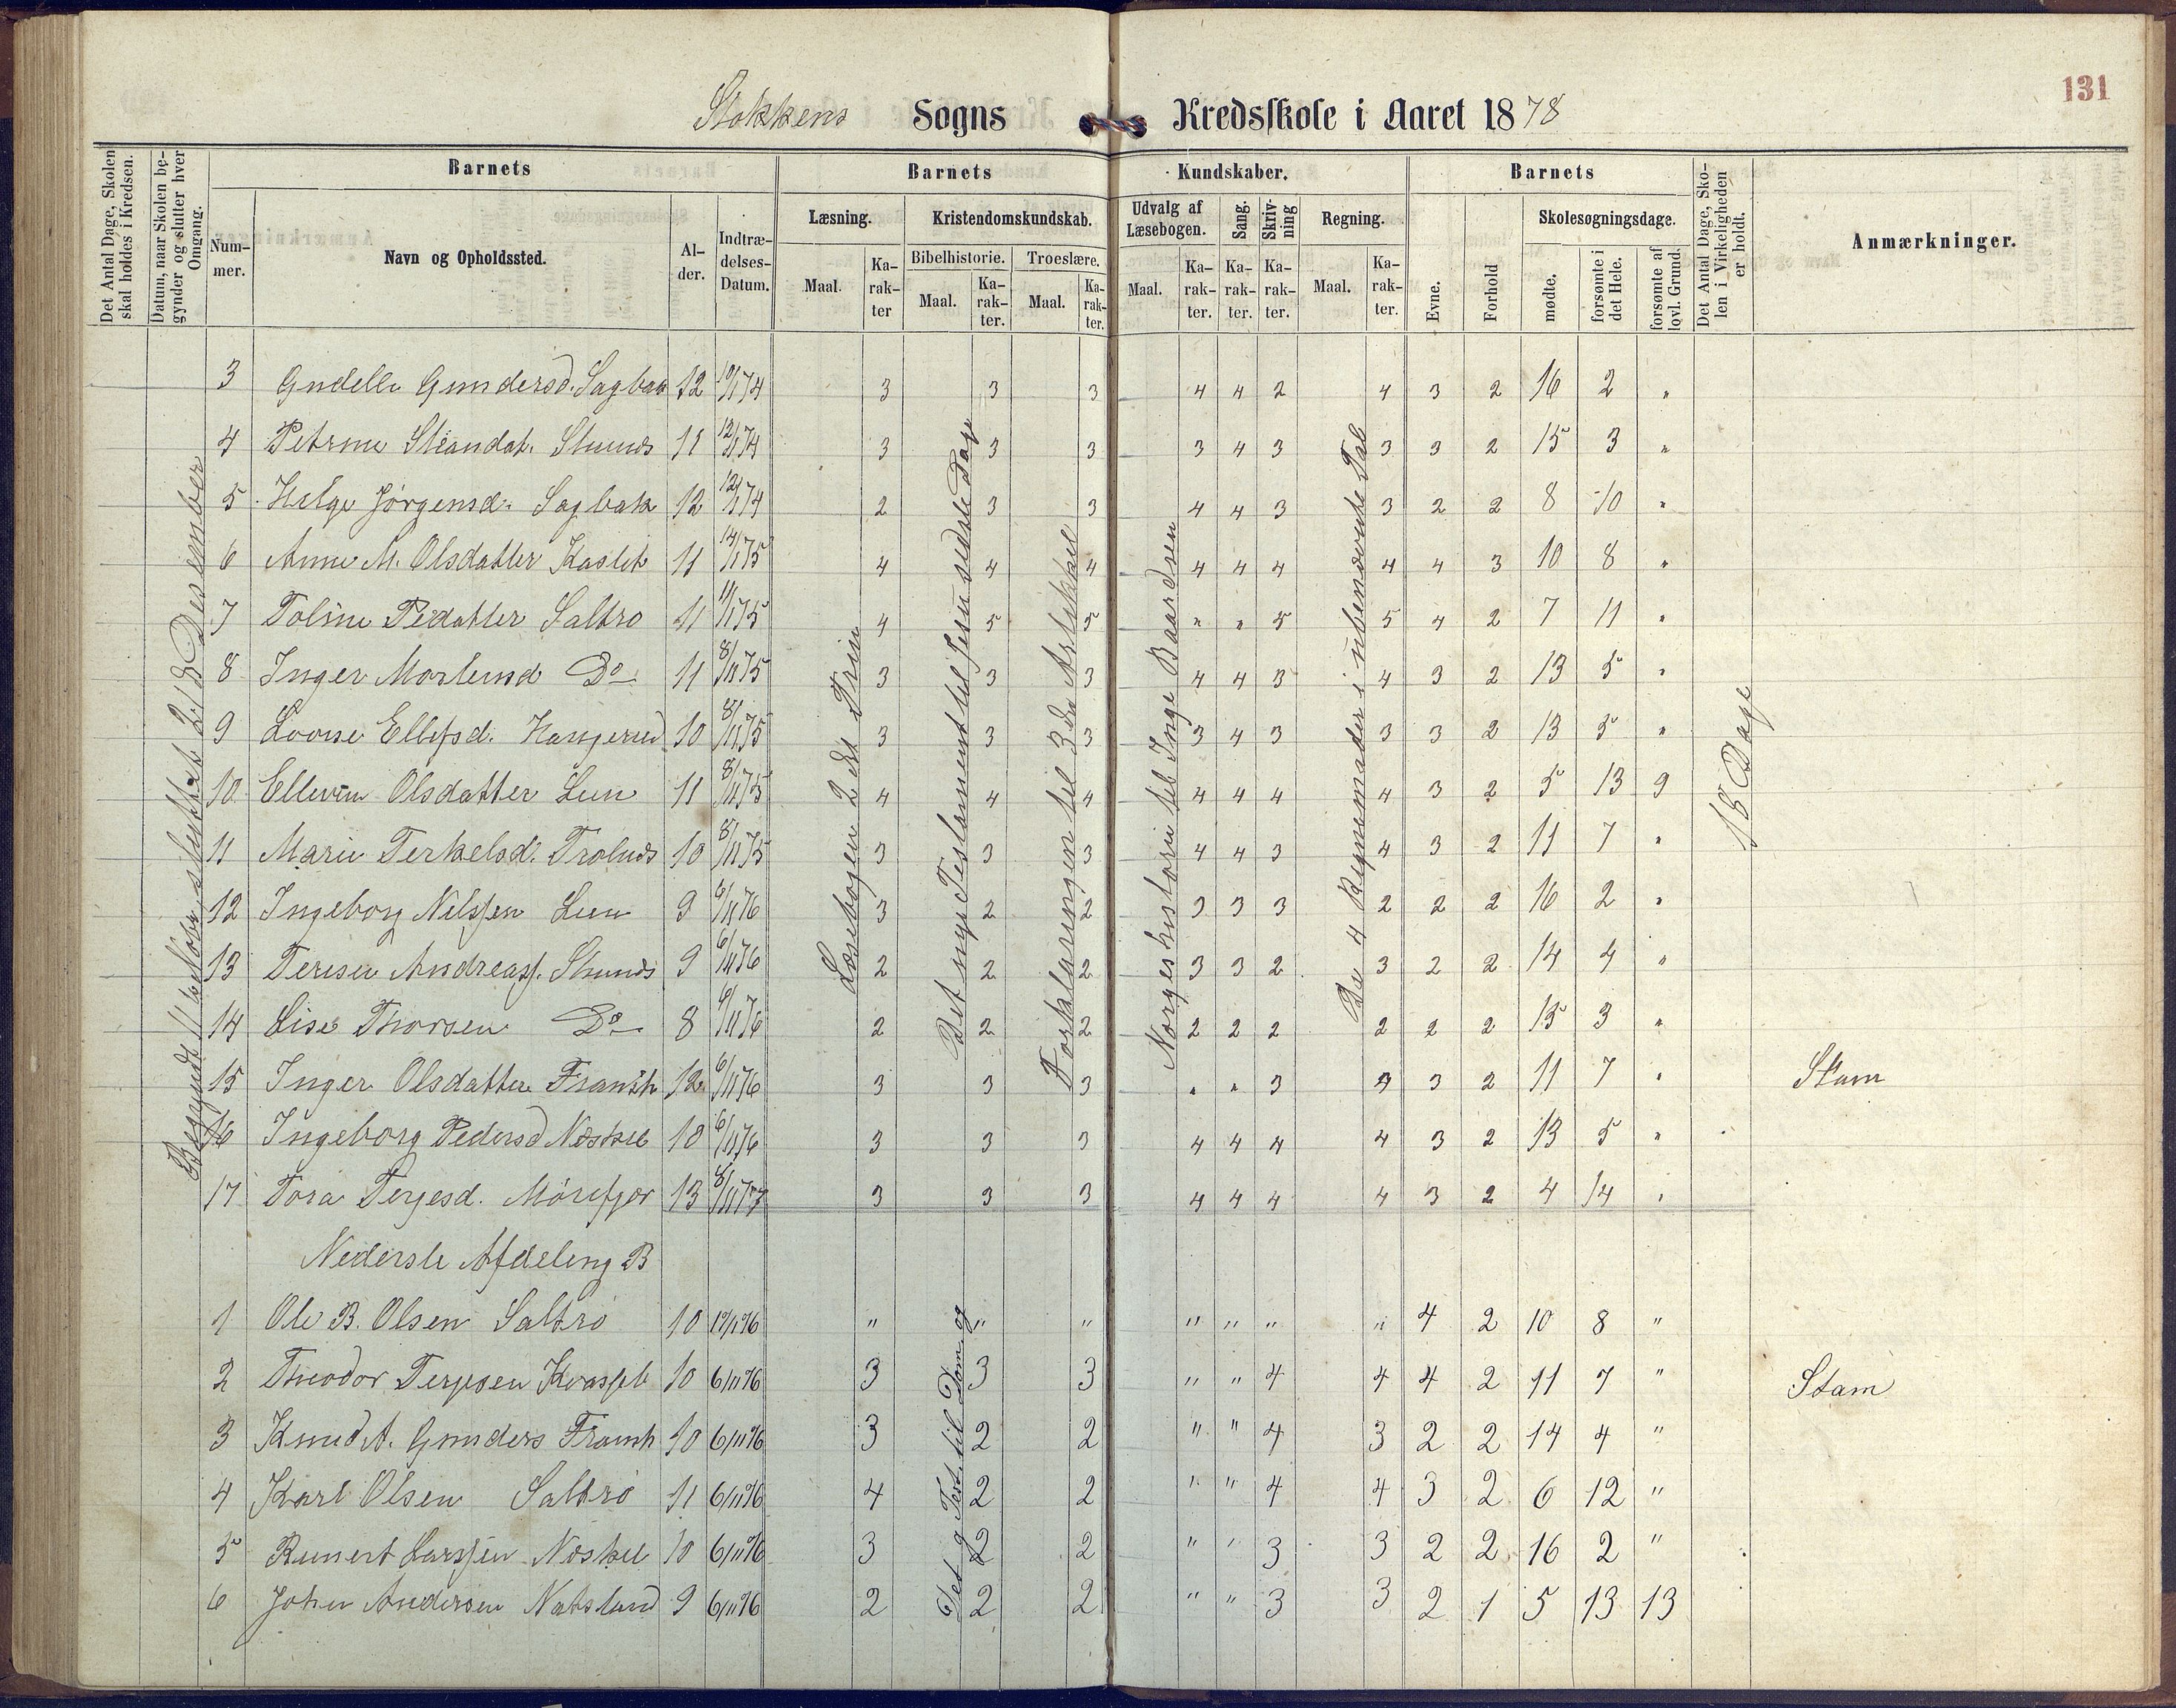 131
Stokkens Sogns Kredsskole i Aaret 1878
Det Antal Dage, Skolen skal holdes i Kredsen.
Datum, naar Skolen begynder og slutter hver Omgang.
Barnets
Nummer.
Navn og Opholdssted.
Alder.
Indtrædelses-Datum.
Barnets Kundskaber.
Læsning.
Maal.
Karakter
Kristendomskundskab.
Bibelhistorie.
Maal.
Karakter.
Troeslære.
Maal.
Karakter.
Udvalg af Læsebogen.
Maal.
Karakter.
Sang.
Karakter.
Skrivning
Karakter.
Regning.
Maal.
Karakter.
Barnets
Evne.
Forhold
Skolesøgningsdage.
mødte.
forsømte i det Hele.
forsømte af lovl. Grund.
Det Antal Dage, Skolen i Virkeligheden er holdt.
Anmærkninger.
Begyndt 11te Novbr sluttet 21 Desember
Læsebogen 2det Trin
Det nye Testament til Jesu sidste Dage
Forklaringen til 3die Artikkel
Norges historie til Inge Baardsen
De 4 Regnemaader i ubenævnte Tal
18 Dage
3 Gundersd. Sagbak 12 3 3 3 4 4 2 4 3 2 16 2 "
4 11 12/11 74 3 3 3 3 4 3 3 3 2 15 3 "
5 Helge Jørgensd. Sagbak 12 12/11 74 2 3 3 4 4 3 3 2 2 8 10 "
6 Anne M. Olsdatter 11 14/11 75 4 4 4 4 4 4 4 4 3 10 8 "
7 Toline Pedatter Saltrø 11 11/11 75 4 5 5 " " 5 5 4 2 7 11 "
8 Inger Do 11 8/11 75 3 3 3 4 4 3 4 3 2 13 5 "
9 Lovise Ellefsd. 10 8/11 75 3 3 3 3 4 3 3 3 2 13 5 "
10 Olsdatter Lun 11 8/11 75 4 4 4 4 4 4 4 3 2 5 13 9
11 Marie Terkelsd. 10 8/11 75 3 3 3 4 4 3 4 3 2 11 7 "
12 Ingeborg Nilssen Lun 9 6/11 76 3 2 2 3 3 3 2 2 2 16 2 "
13 Terese Andreass. 9 6/11 76 2 2 2 3 3 2 3 2 2 14 4 "
14 Lise Thorsen Do 8 6/11 76 2 2 2 2 2 2 2 2 2 15 3 "
15 Inger Olsdatter 12 6/11 76 3 3 3 " " 3 3 2 11 7 " Stam
16 Ingeborg Pedersd Næskil 10 6/11 76 3 3 3 4 4 4 4 3 2 13 5 "
17 Tora Terjesd. Mørefjær 13 8/11 77 3 3 3 4 4 4 4 3 2 4 14 "
Nederste Afdeling B
Det g Test. til Dom. og
1 Ole B. Olsen Saltrø 10 " " " " " " " 4 2 10 8 "
2 Theodor Terjesen 10 6/11 76 3 3 3 " " 4 4 4 2 11 7 " Stam
3 Knud A. Gunders 10 6/11 76 3 2 2 " " 4 3 2 2 14 4 "
4 Karl Olsen Saltrø 11 6/11 76 4 2 2 " " 4 4 3 2 6 12 "
5 Larssen Næskil 10 6/11 76 3 2 2 " " 3 3 2 2 16 2 "
6 John Andersen Natsland 9 6/11 76 2 2 2 " " 3 3 2 1 5 13 13